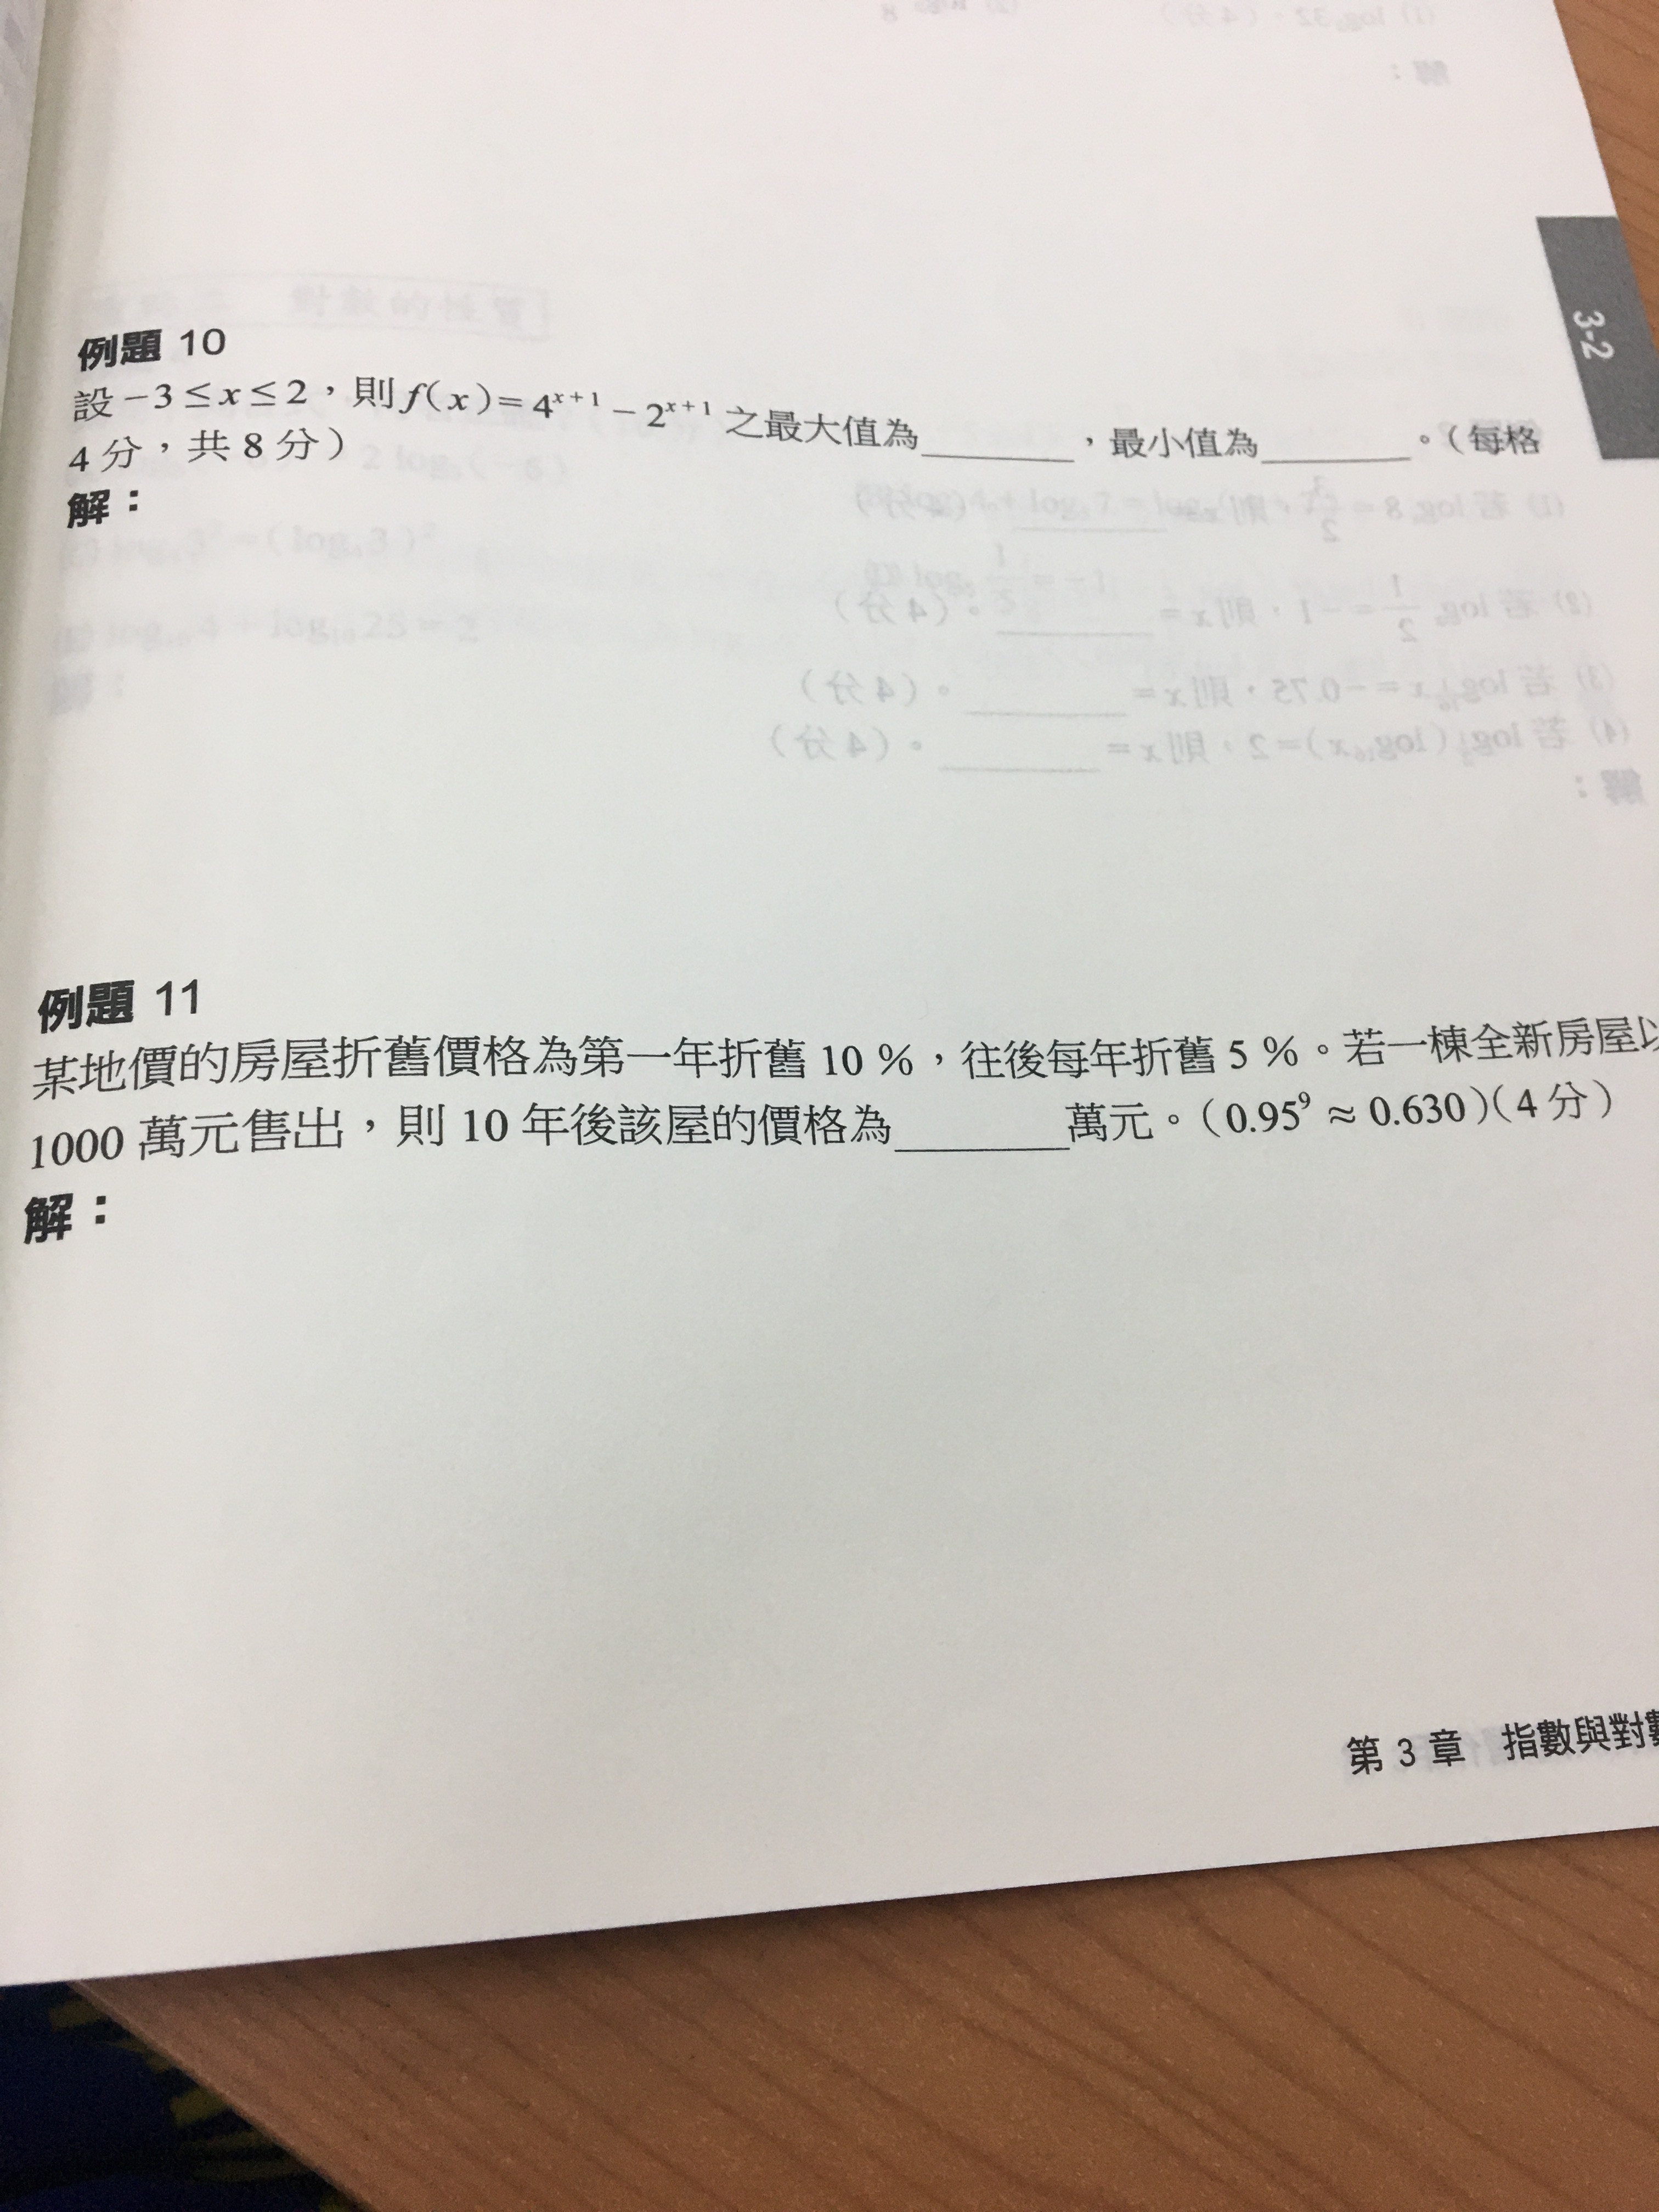 3-2
例題 10
設 −3 ≤ x ≤ 2，則 f(x) = 4ˣ⁺¹ − 2ˣ⁺¹ 之最大值為______，最小值為______。（每格
4 分，共 8 分）
解：
例題 11
某地價的房屋折舊價格為第一年折舊 10 %，往後每年折舊 5 %。若一棟全新房屋以
1000 萬元售出，則 10 年後該屋的價格為______萬元。（0.95⁹ ≈ 0.630）（4 分）
解：
第 3 章 指數與對數